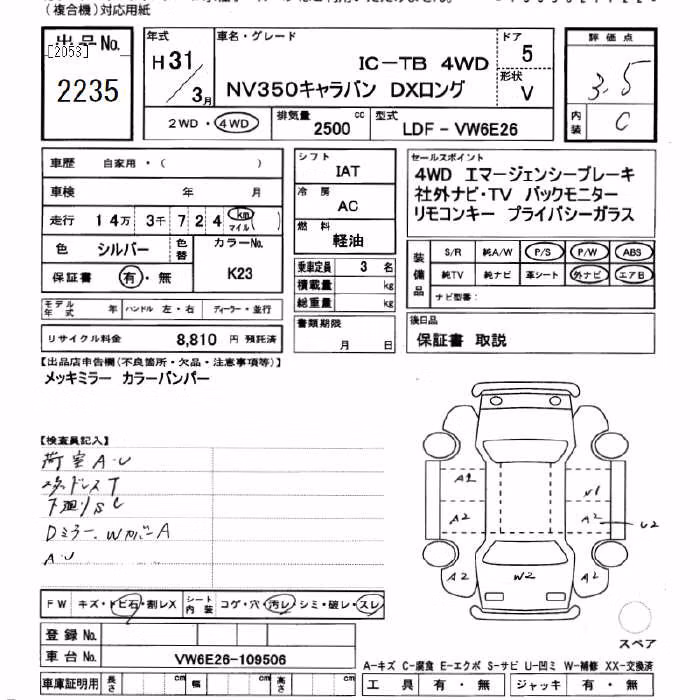 (複合機)対応用紙
出品No.
[2053]
2235
年式
H31
3月
車名・グレード
IC-TB 4WD
NV350キャラバン DXロング
ドア
5
形状
V
評価点
3.5
内装
C
2WD・4WD
排気量
2500 cc
型式
LDF-VW6E26
車歴 自家用・( )
車検 年 月
走行 14万 3千 7 2 4 km マイル ( )
色 シルバー
色替
カラーNo.
K23
保証書 有・無
モデル年式 年 ハンドル 左・右 ディーラー・並行
リサイクル料金 8,810 円 預託済
シフト
IAT
冷房
AC
燃料
軽油
乗車定員 3 名
積載量 kg
総重量 kg
書類期限
月 日
セールスポイント
4WD エマージェンシーブレーキ
社外ナビ・TV バックモニター
リモコンキー プライバシーガラス
装備品
S/R 純A/W P/S P/W ABS
純TV 純ナビ 革シート 外ナビ エアB
ナビ型番:
後日品
保証書 取説
【出品店申告欄(不良箇所・欠品・注意事項等)】
メッキミラー カラーバンパー
【検査員記入】
荷室A・U
スタッドレスT
下廻りS C
Dミラー、WカバーA
A・U
A2
A2
A2
W2
U1
A2
U2
A2
スペア
FW キズ・トビ石・割レX
シート内装 コゲ・穴・汚レ・シミ・破レ・スレ
登録No.
車台No. VW6E26-109506
車庫証明用 長さ cm 幅 cm 高さ cm
A-キズ C-腐食 E-エクボ S-サビ U-凹ミ W-補修 XX-交換済
工具 有・無 ジャッキ 有・無